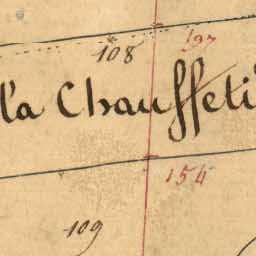 108
197
la Chauffeti
154
109